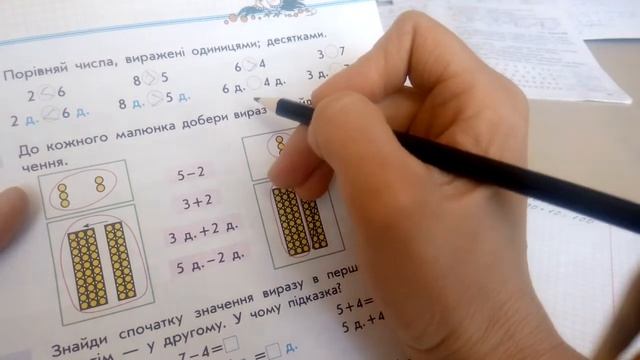 Порівняй числа, виражені одиницями; десятками.
2 < 6 8 > 5 6 > 4 3 ○ 7
2 д. < 6 д. 8 д. > 5 д. 6 д. ○ 4 д. 3 д.
До кожного малюнка добери вираз
чення.
5 – 2
3 + 2
3 д. + 2 д.
5 д. – 2 д.
Знайди спочатку значення виразу в перш
тім — у другому. У чому підказка?
5 + 4 =
5 д. + 4
7 – 4 = □
= □ д.